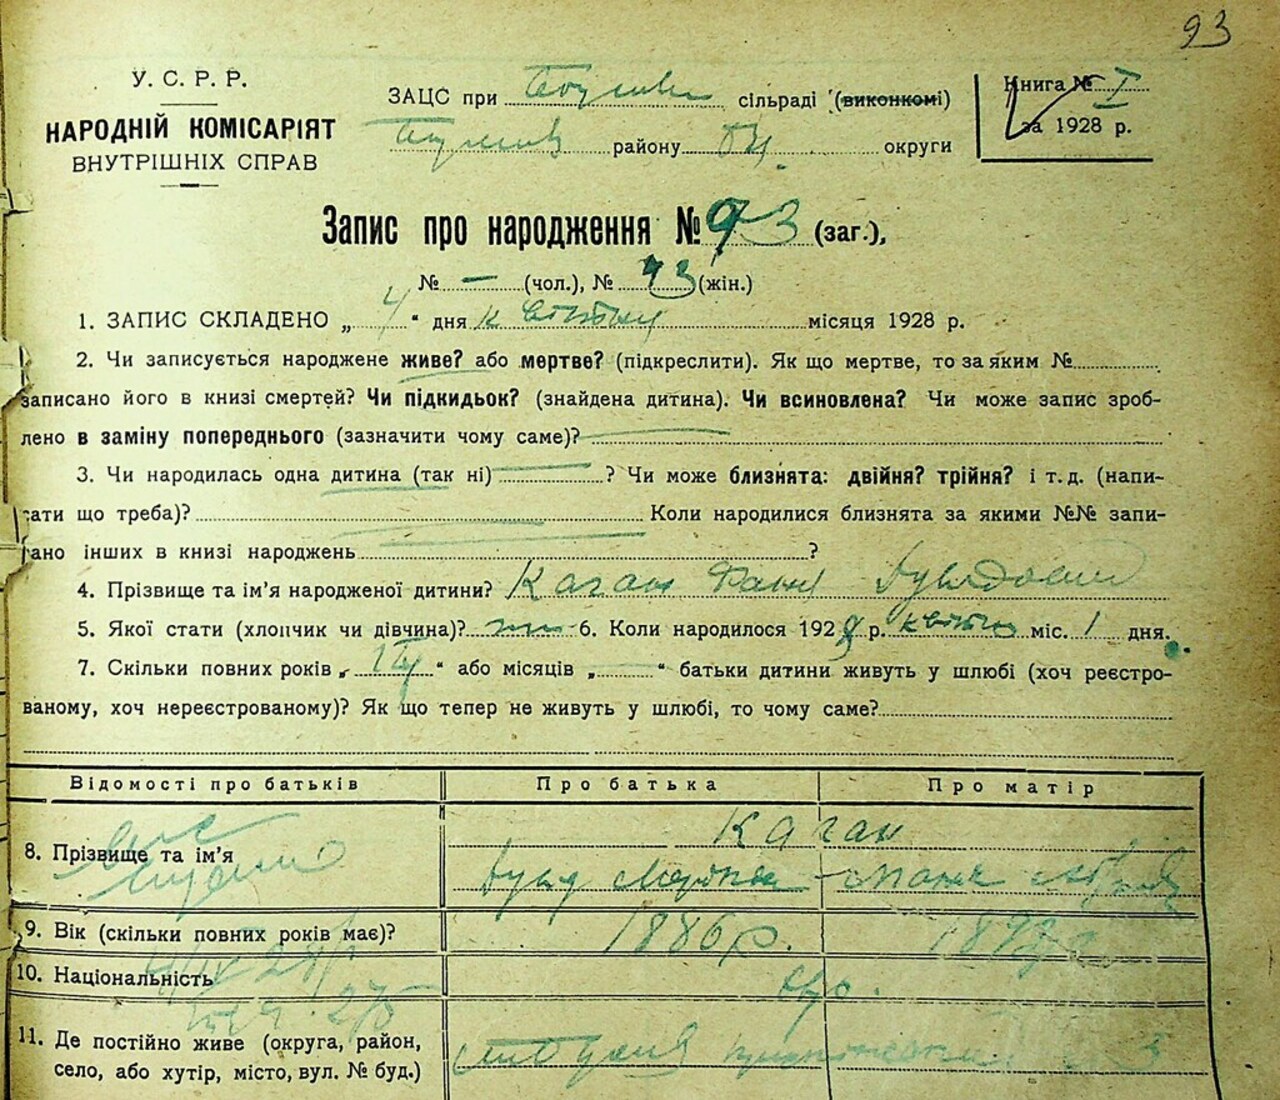 93
У. С. Р. Р.
НАРОДНІЙ КОМІСАРІЯТ
ВНУТРІШНІХ СПРАВ
ЗАЦС при сільраді (виконкомі)
району округи
Книга № I
за 1928 р.
Запис про народження № 93 (заг.),
№ — (чол.), № 43 (жін.)
1. ЗАПИС СКЛАДЕНО „ 4 “ дня квітня місяця 1928 р.
2. Чи записується народжене живе? або мертве? (підкреслити). Як що мертве, то за яким №
записано його в книзі смертей? Чи підкидьок? (знайдена дитина). Чи всиновлена? Чи може запис зроб-
лено в заміну попереднього (зазначити чому саме)?
3. Чи народилась одна дитина (так ні) ? Чи може близнята: двійня? трійня? і т.д. (напи-
сати що треба)? Коли народилися близнята за якими №№ запи-
сано інших в книзі народжень ?
4. Прізвище та ім’я народженої дитини? Каган Фаня
5. Якої стати (хлопчик чи дівчина)? 6. Коли народилося 1928 р. квітня міс. 1 дня.
7. Скільки повних років „ “ або місяців „ “ батьки дитини живуть у шлюбі (хоч реєстро-
ваному, хоч нереєстрованому)? Як що тепер не живуть у шлюбі, то чому саме?
Відомості про батьків Про батька Про матір
8. Прізвище та ім’я Каган
9. Вік (скільки повних років має)? 1886 р.
10. Національність евр.
11. Де постійно живе (округа, район,
село, або хутір, місто, вул. № буд.)